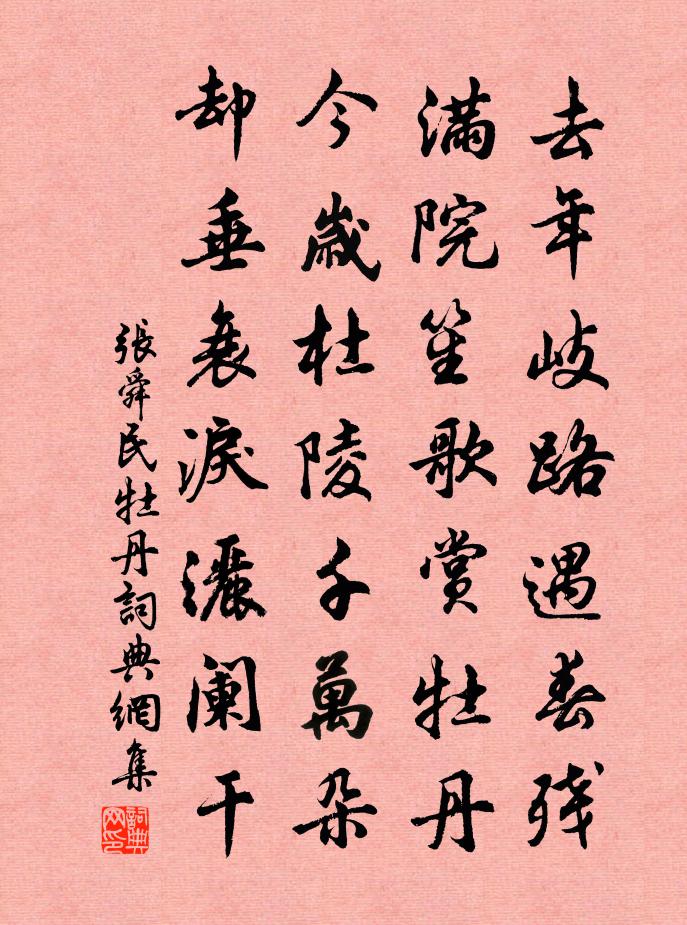 去年歧路遇春残
滿院笙歌賞牡丹
今歲杜陵千萬朵
却垂衰淚灑阑干
張舜民牡丹詞典網集
詞典网印